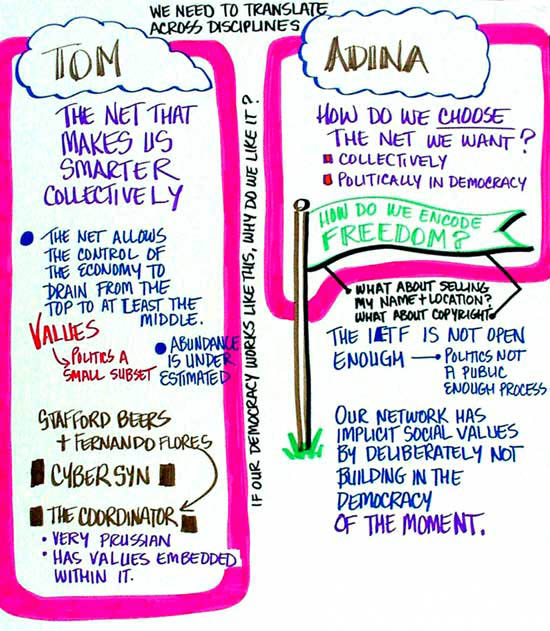 WE NEED TO TRANSLATE
ACROSS DISCIPLINES
TOM
THE NET THAT
MAKES US
SMARTER
COLLECTIVELY
THE NET ALLOWS
THE CONTROL OF
THE ECONOMY TO
DRAIN FROM THE
TOP TO AT LEAST THE
MIDDLE.
VALUES
POLITICS A
SMALL SUBSET
ABUNDANCE
IS UNDER
ESTIMATED
STAFFORD BEERS
+ FERNANDO FLORES
CYBERSYN
THE COORDINATOR
• VERY PRUSSIAN
• HAS VALUES EMBEDDED
WITHIN IT.
IF OUR DEMOCRACY WORKS LIKE THIS, WHY DO WE LIKE IT?
ADINA
HOW DO WE CHOOSE
THE NET WE WANT?
COLLECTIVELY
POLITICALLY IN DEMOCRACY
HOW DO WE ENCODE
FREEDOM?
WHAT ABOUT SELLING
MY NAME + LOCATION?
WHAT ABOUT COPYRIGHT
THE IETF IS NOT OPEN
ENOUGH → POLITICS NOT
A PUBLIC
ENOUGH PROCESS
OUR NETWORK HAS
IMPLICIT SOCIAL VALUES
BY DELIBERATELY NOT
BUILDING IN THE
DEMOCRACY
OF THE MOMENT.